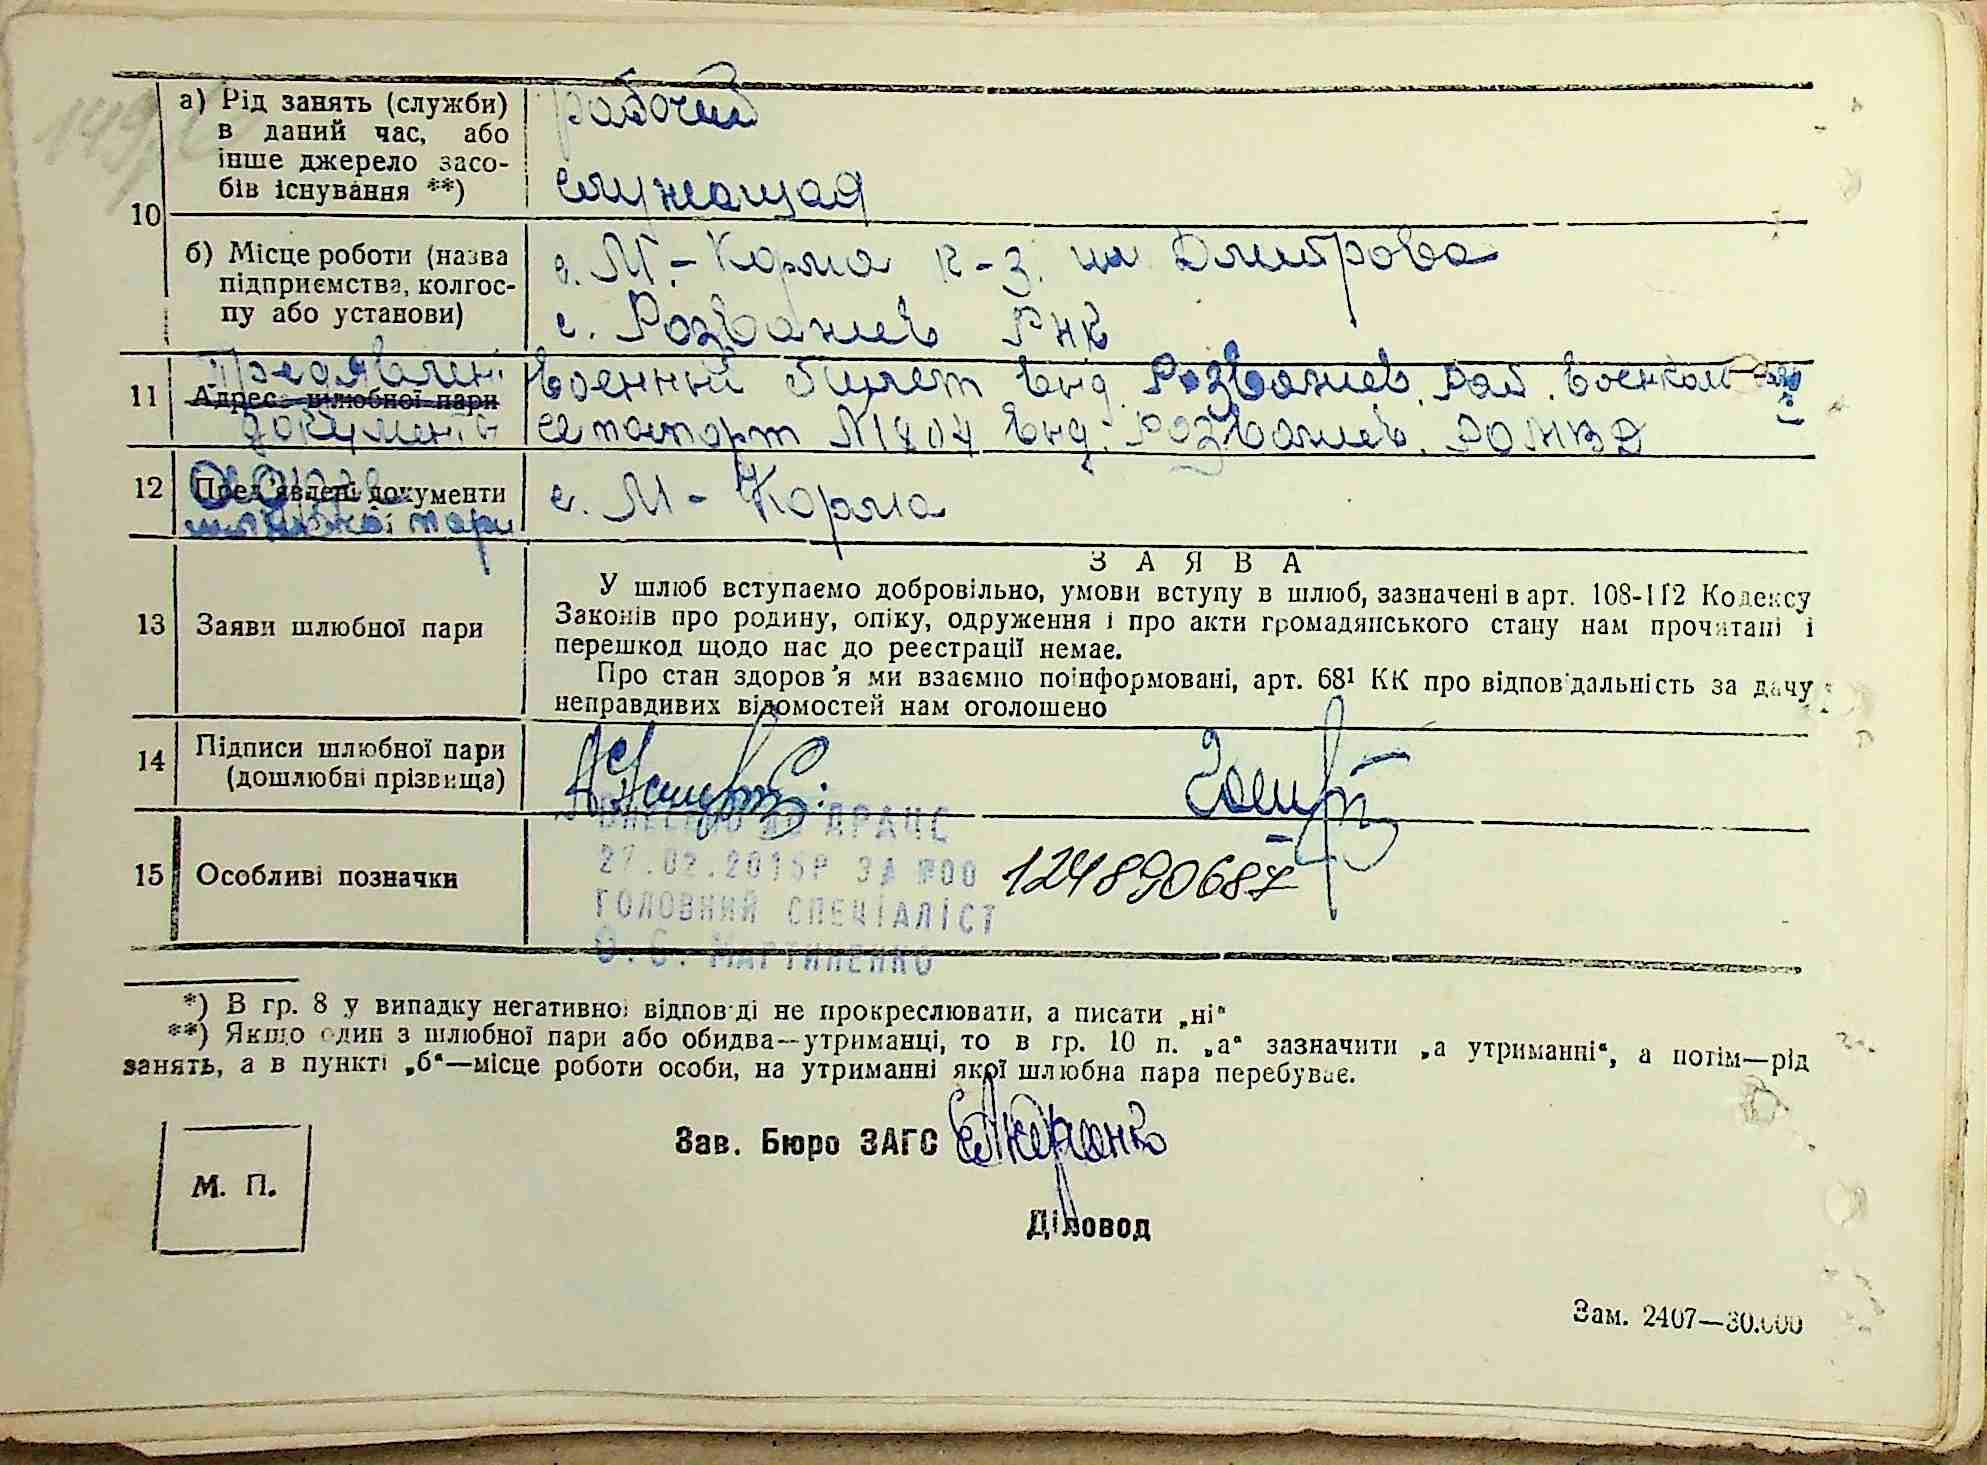 а) Рід занять (служби)
в даний час, або
інше джерело засо-
бів існування **)
рабочий
служащая
10
б) Місце роботи (назва
підприємства, колгос-
пу або установи)
с. М-Корма к-з. им Димитрова
с. Розважев РНК
11
Предявлені
Адреса шлюбної пари
документи
военный билет выд. Розважев. рай. военком
паспорт № 1804 выд. Розважев. РОМВД
12
Пред'явлені документи
шлюбної пари
с. М-Корма
13
Заяви шлюбної пари
ЗАЯВА
У шлюб вступаємо добровільно, умови вступу в шлюб, зазначені в арт. 108-112 Кодексу
Законів про родину, опіку, одруження і про акти громадянського стану нам прочитані і
перешкод щодо нас до реєстрації немає.
Про стан здоров'я ми взаємно поінформовані, арт. 68¹ КК про відповідальність за дачу
неправдивих відомостей нам оголошено
14
Підписи шлюбної пари
(дошлюбні прізвища)
15
Особливі позначки
ВНЕСЕНО ДО ДРАЦС
27.02.2015Р ЗА №00
124890687
ГОЛОВНИЙ СПЕЦІАЛІСТ
О.С. МАРТИНЕНКО
*) В гр. 8 у випадку негативної відповіді не прокреслювати, а писати „ні“
**) Якщо один з шлюбної пари або обидва—утриманці, то в гр. 10 п. „а“ зазначити „а утриманні“, а потім—рід
занять, а в пункті „б“—місце роботи особи, на утриманні якої шлюбна пара перебуває.
Зав. Бюро ЗАГС
М. П.
Діловод
Зам. 2407—30.000